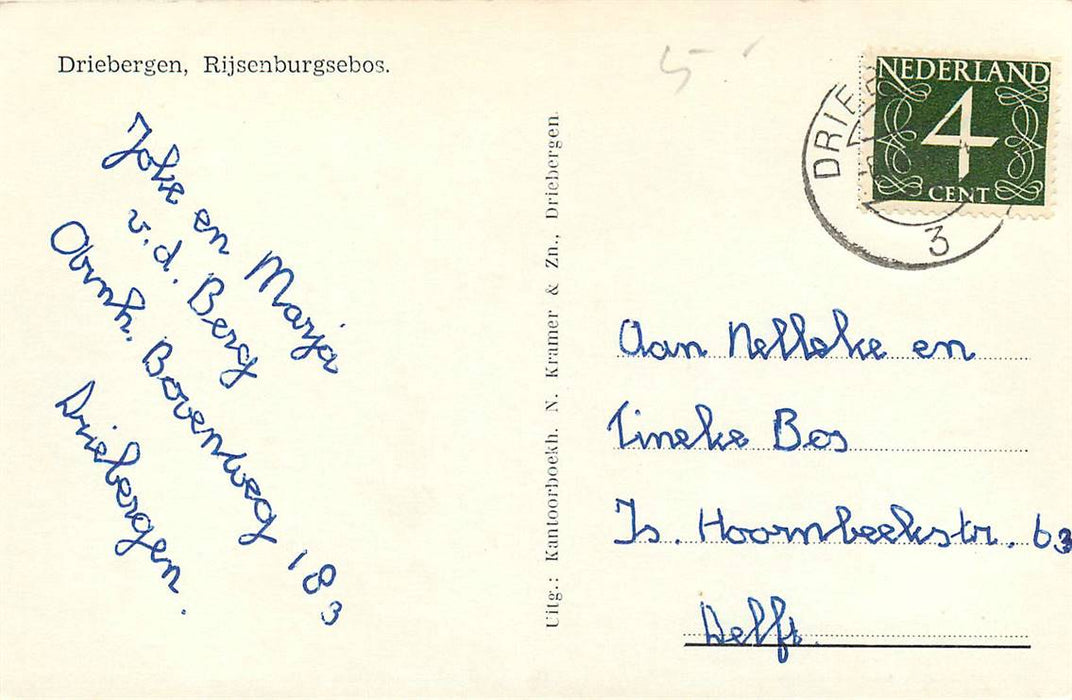 Driebergen, Rijsenburgsebos.
Joke en Marja
v.d. Berg
Arnh. Bovenweg 183
Driebergen.
Uitg.: Kantoorboekh. N. Kramer & Zn., Driebergen.
5
NEDERLAND
4
CENT
DRIEB
3
Aan Nelleke en
Tineke Bos
Is. Hoornbeekstr. 63
Delft.